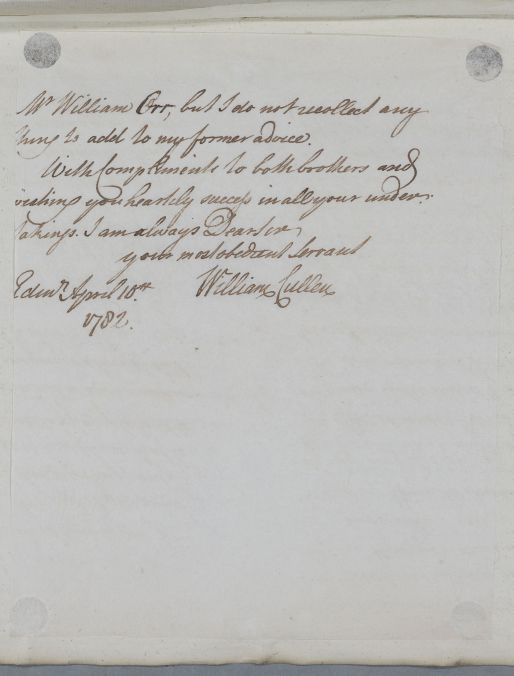 Mr William Orr, but I do not recollect any
thing to add to my former advice.
With Compliments to both brothers and
wishing you heartily success in all your under-
takings. I am always Dear Sir
your most obedient servant
Edinr April 18th William Cullen
1782.